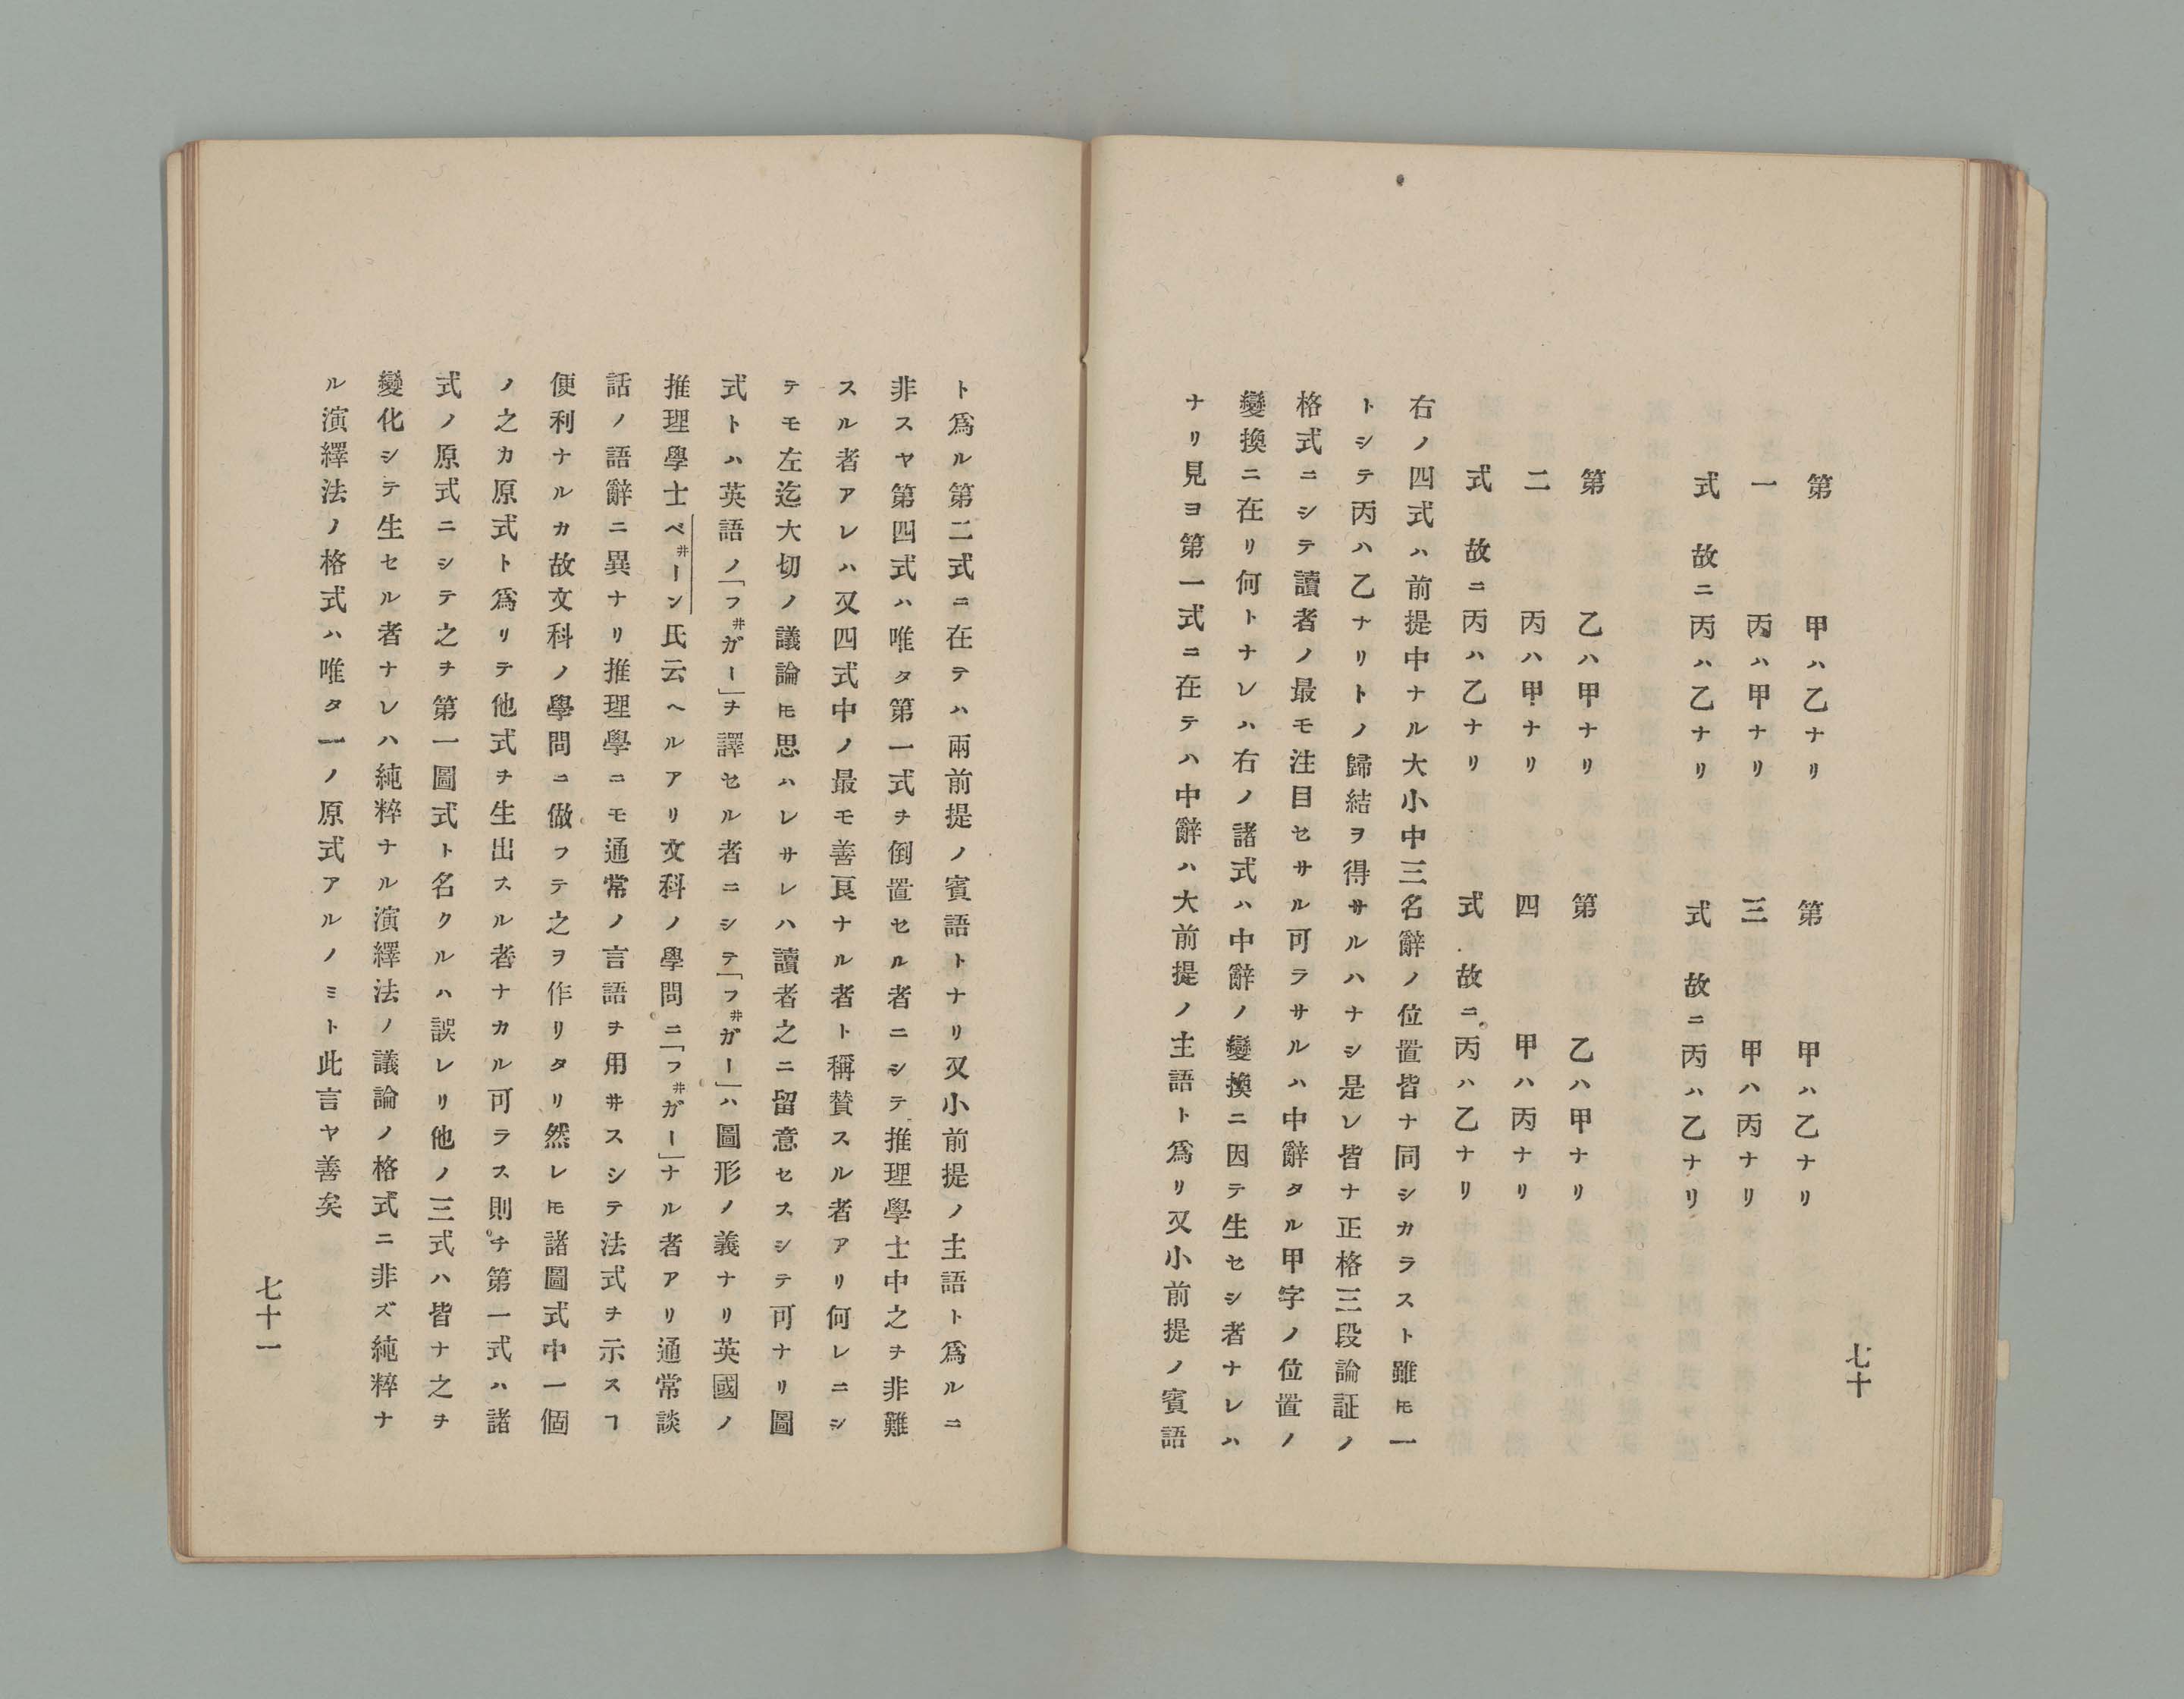 七十
第　甲ハ乙ナリ　第　甲ハ乙ナリ
一　丙ハ甲ナリ　三　甲ハ丙ナリ
式　故ニ丙ハ乙ナリ　式　故ニ丙ハ乙ナリ
第　乙ハ甲ナリ　第　乙ハ甲ナリ
二　丙ハ甲ナリ　四　甲ハ丙ナリ
式　故ニ丙ハ乙ナリ　式　故ニ丙ハ乙ナリ
右ノ四式ハ前提中ナル大小中三名辭ノ位置皆ナ同シカラスト雖𪜈一
トシテ丙ハ乙ナリトノ歸結ヲ得サルハナシ是レ皆ナ正格三段論証ノ
格式ニシテ讀者ノ最モ注目セサル可ラサルハ中辭タル甲字ノ位置ノ
變換ニ在リ何トナレハ右ノ諸式ハ中辭ノ變換ニ因テ生セシ者ナレハ
ナリ見ヨ第一式ニ在テハ中辭ハ大前提ノ主語ト爲リ又小前提ノ賓語
ト爲ル第二式ニ在テハ兩前提ノ賓語トナリ又小前提ノ主語ト爲ルニ
非スヤ第四式ハ唯タ第一式ヲ倒置セル者ニシテ推理學士中之ヲ非難
スル者アレハ又四式中ノ最モ善良ナル者ト稱賛スル者アリ何レニシ
テモ左迄大切ノ議論𪜈思ハレサレハ讀者之ニ留意セスシテ可ナリ圖
式トハ英語ノ「フ井ガー」ヲ譯セル者ニシテ「フ井ガー」ハ圖形ノ義ナリ英國ノ
推理學士ベ井ーン氏云ヘルアリ文科ノ學問ニ「フ井ガー」ナル者アリ通常談
話ノ語辭ニ異ナリ推理學ニモ通常ノ言語ヲ用井スシテ法式ヲ示スヿ
便利ナルカ故文科ノ學問ニ倣フテ之ヲ作リタリ然レ𪜈諸圖式中一個
ノ之カ原式ト爲リテ他式ヲ生出スル者ナカル可ラス則チ第一式ハ諸
式ノ原式ニシテ之ヲ第一圖式ト名クルハ誤レリ他ノ三式ハ皆ナ之ヲ
變化シテ生セル者ナレハ純粹ナル演繹法ノ議論ノ格式ニ非ズ純粹ナ
ル演繹法ノ格式ハ唯タ一ノ原式アルノミト此言ヤ善矣
七十一